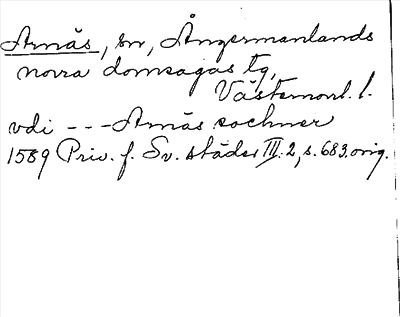 Arnäs, sn, Ångermanlands
norra domsagas tg,
Västernorrl. l.
vdi --- Arnäs sochner
1589 Priv. f. Sv. städer III:2, s. 683. orig.